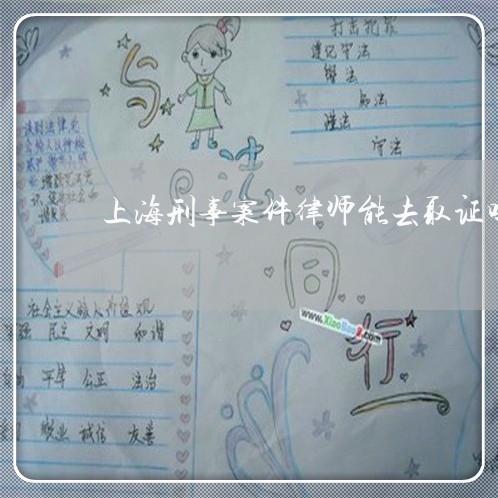 打击犯罪
遵纪守法
学法
知法
懂法
守法
与
法
同
行
上海刑事案件律师能去取证吗
www.XiaoBao8.com
社会主义核心价值观
富强 民主 文明 和谐
自由 平等 公正 法治
敬业 诚信 友善